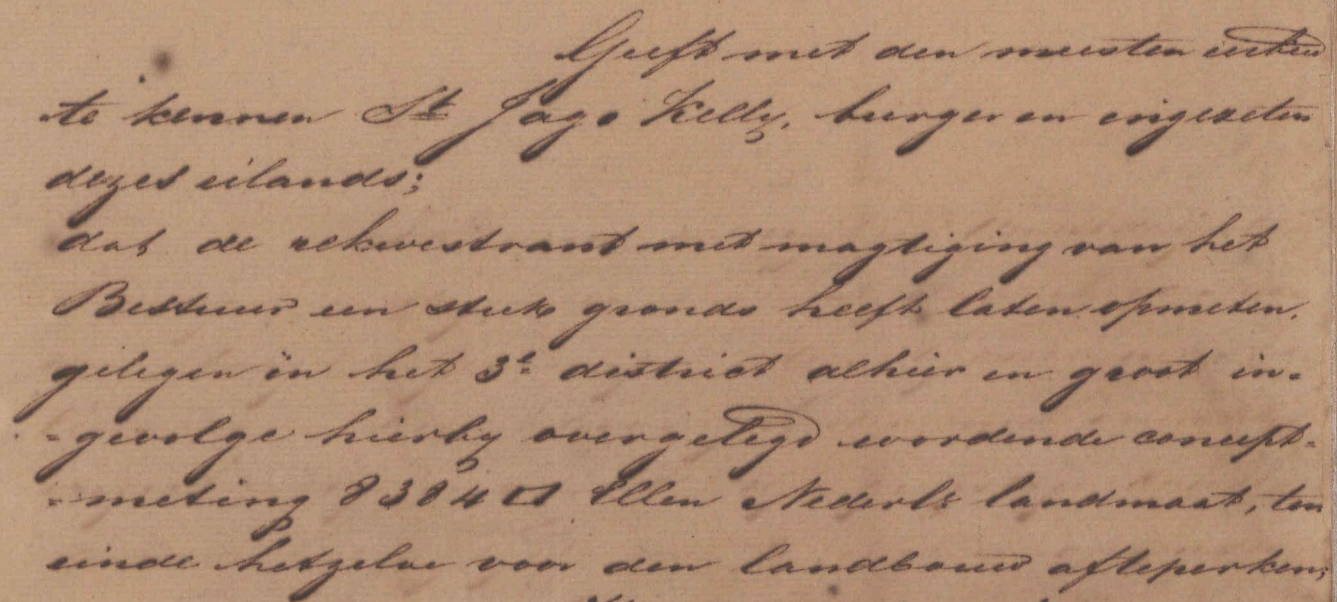 Geeft met den meesten eerbied
te kennen St Jago Kelly, burger en ingezeten
dezes eilands;
dat de rekwestrant met magtiging van het
Bestuur een stuk gronds heeft laten opmeten.
gelegen in het 3e district alhier en groot in-
-gevolge hierby overgelegd wordende concept-
-meting 8384 □ Ellen Nederls landmaat, ten
einde hetzelve voor den landbouw afteperken;